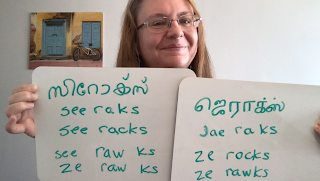 സിറോക്സ്
see raks
see racks
see raw ks
ze raw ks
ജെറാക്സ്
Jae raks
ze rocks
ze rawks